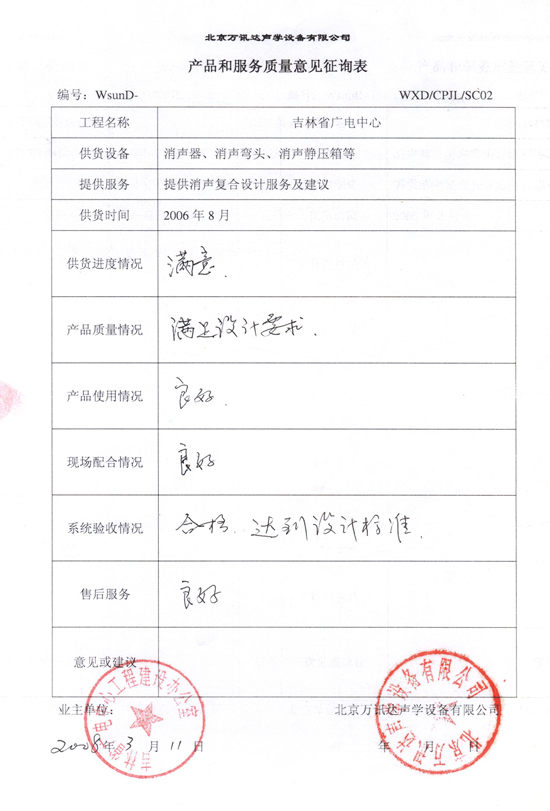 北京万讯达声学设备有限公司
产品和服务质量意见征询表
编号：WsunD- WXD/CPJL/SC02
工程名称 吉林省广电中心
供货设备 消声器、消声弯头、消声静压箱等
提供服务 提供消声复合设计服务及建议
供货时间 2006 年 8 月
供货进度情况 满意.
产品质量情况 满足设计要求.
产品使用情况 良好.
现场配合情况 良好
系统验收情况 合格. 达到设计标准.
售后服务 良好
意见或建议
业主单位： 北京万讯达声学设备有限公司
2008年 3 月 11 日 年 月 日
吉林省广电中心工程建设办公室
北京万讯达声学设备有限公司